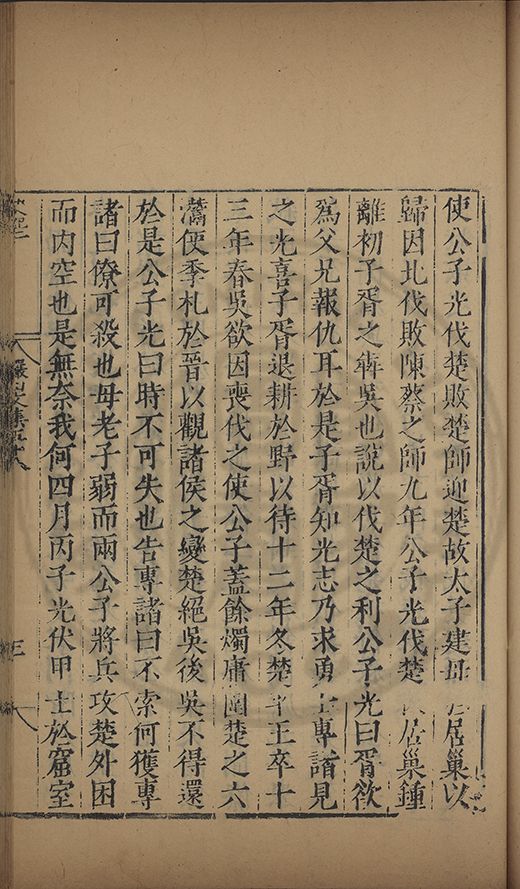 使公子光伐楚敗楚師迎楚故太子建母居巢以
歸因北伐敗陳蔡之師九年公子光伐楚居巢鍾
離初子胥之犇吳也說以伐楚之利公子光曰胥欲
爲父兄報仇耳於是子胥知光志乃求勇士專諸見
之光喜子胥退耕於野以待十二年冬楚平王卒十
三年春吳欲因喪伐之使公子蓋餘燭庸圍楚之六
灊使季札於晉以觀諸侯之變楚絕吳後吳不得還
於是公子光曰時不可失也告專諸曰不索何獲專
諸曰僚可殺也母老子弱而兩公子將兵攻楚外困
而內空也是無奈我何四月丙子光伏甲士於窟室
三